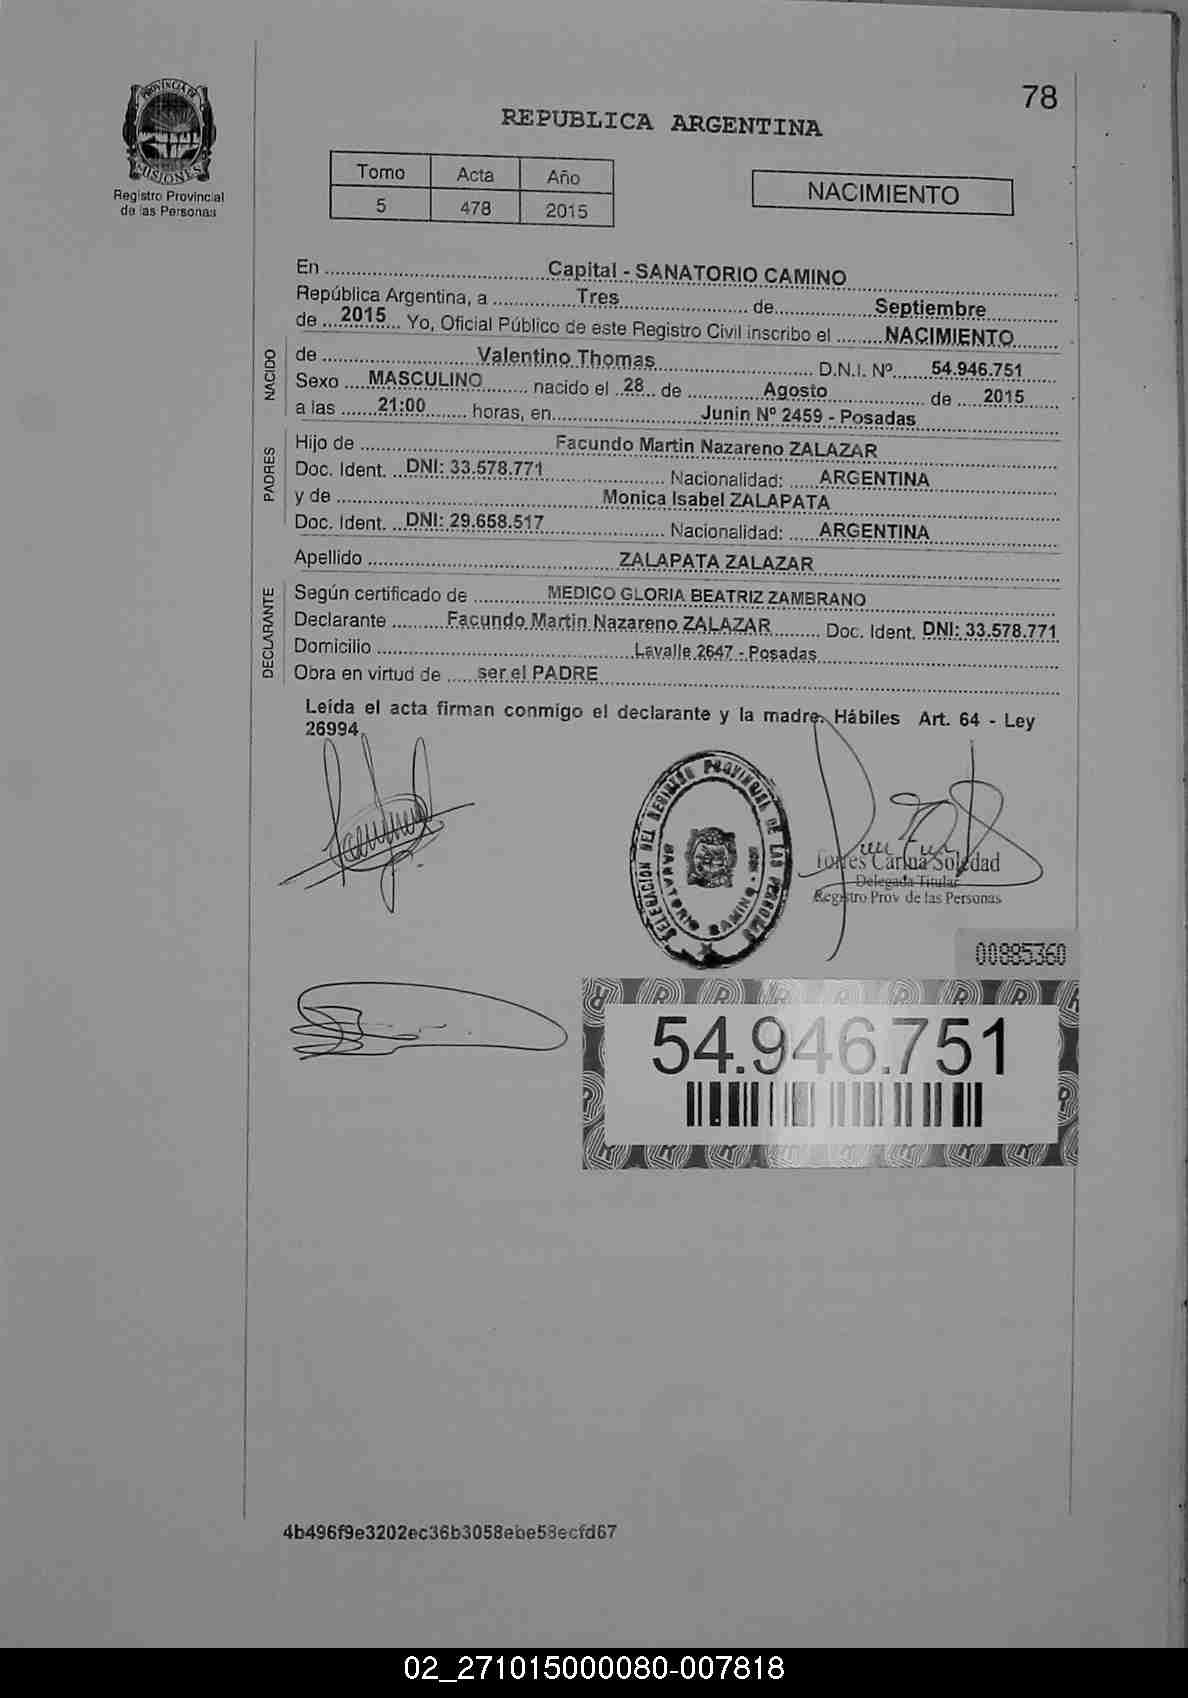 78
PROVINCIA DE
MISIONES
Registro Provincial
de las Personas
REPUBLICA ARGENTINA
Tomo Acta Año
5 478 2015
NACIMIENTO
En Capital - SANATORIO CAMINO
República Argentina, a Tres de Septiembre
de 2015 Yo, Oficial Público de este Registro Civil inscribo el NACIMIENTO
NACIDO
de Valentino Thomas D.N.I. Nº 54.946.751
Sexo MASCULINO nacido el 28 de Agosto de 2015
a las 21:00 horas, en Junin Nº 2459 - Posadas
PADRES
Hijo de Facundo Martin Nazareno ZALAZAR
Doc. Ident. DNI: 33.578.771 Nacionalidad: ARGENTINA
y de Monica Isabel ZALAPATA
Doc. Ident. DNI: 29.658.517 Nacionalidad: ARGENTINA
Apellido ZALAPATA ZALAZAR
DECLARANTE
Según certificado de MEDICO GLORIA BEATRIZ ZAMBRANO
Declarante Facundo Martin Nazareno ZALAZAR Doc. Ident. DNI: 33.578.771
Domicilio Lavalle 2647 - Posadas
Obra en virtud de ser el PADRE
Leída el acta firman conmigo el declarante y la madre. Hábiles Art. 64 - Ley
26994
DELEGACION DEL REGISTRO PROVINCIAL DE LAS PERSONAS
SANATORIO CAMINO
Torres Carina Soledad
Delegada Titular
Registro Prov de las Personas
00885360
54.946.751
4b496f9e3202ec36b3058ebe58ecfd67
02_271015000080-007818